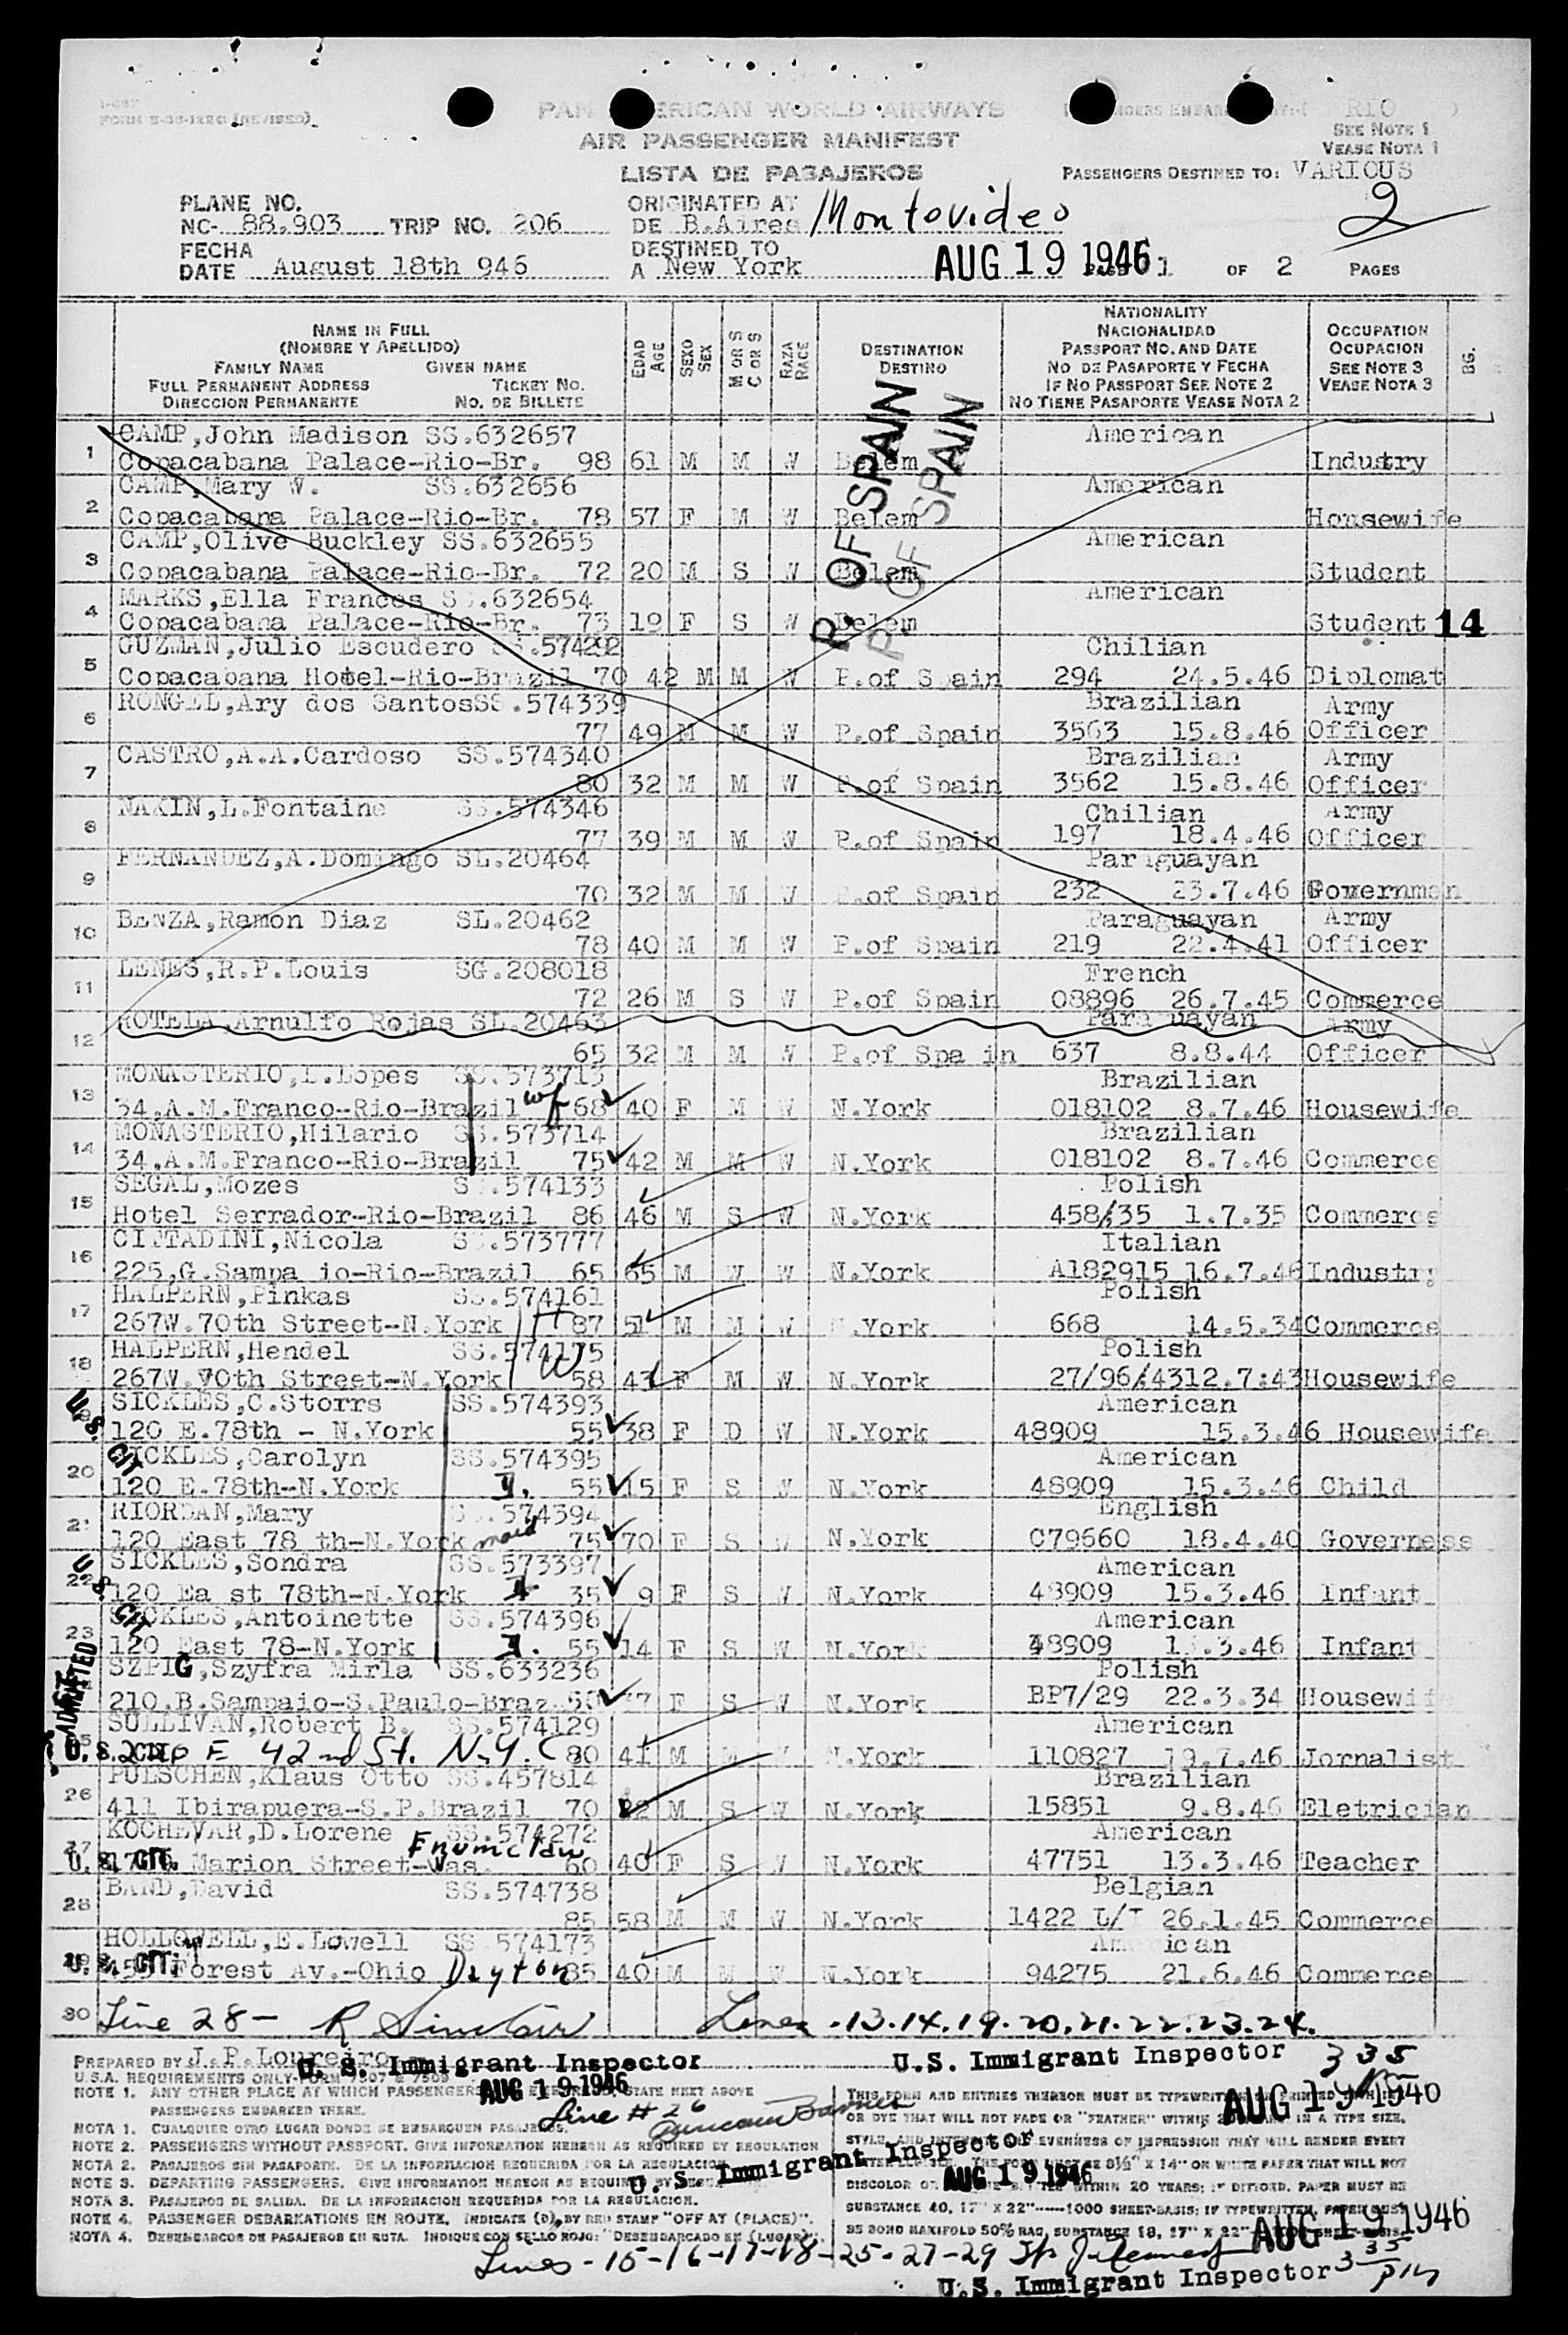 I-487
FORM
PAN AMERICAN WORLD AIRWAYS
AIR PASSENGER MANIFEST
LISTA DE PASAJEROS
RIO
SEE NOTE 1
VEASE NOTA 1
PASSENGERS DESTINED TO: VARIOUS
2
PLANE NO.
NC- 88.903 TRIP NO. 206
FECHA
DATE August 18th 946
ORIGINATED AT
DE B.Aires Montevideo
DESTINED TO
A New York
AUG 19 1946
1 OF 2 PAGES
NAME IN FULL
(NOMBRE Y APELLIDO)
FAMILY NAME GIVEN NAME
FULL PERMANENT ADDRESS TICKET NO.
DIRECCION PERMANENTE NO. DE BILLETE
EDAD AGE
SEXO SEX
M OR S C OR S
RAZA RACE
DESTINATION
DESTINO
NATIONALITY
NACIONALIDAD
PASSPORT NO. AND DATE
NO DE PASAPORTE Y FECHA
IF NO PASSPORT SEE NOTE 2
NO TIENE PASAPORTE VEASE NOTA 2
OCCUPATION
OCUPACION
SEE NOTE 3
VEASE NOTA 3
BG.
P. OF SPAIN
P OF SPAIN
1 CAMP,John Madison SS.632657 American
Copacabana Palace-Rio-Br. 98 61 M M W Belem Industry
2 CAMP,Mary W. SS.632656 American
Copacabana Palace-Rio-Br. 78 57 F M W Belem Housewife
3 CAMP,Olive Buckley SS.632655 American
Copacabana Palace-Rio-Br. 72 20 M S W Belem Student
4 MARKS,Ella Frances SS.632654 American
Copacabana Palace-Rio-Br. 73 19 F S W Belem Student 14
5 GUZMAN,Julio Escudero SS.574292 Chilian
Copacabana Hotel-Rio-Brazil 70 42 M M W P.of Spain 294 24.5.46 Diplomat
6 RONGEL,Ary dos SantosSS.574339 Brazilian Army
77 49 M M W P.of Spain 3563 15.8.46 Officer
7 CASTRO,A.A.Cardoso SS.574340 Brazilian Army
80 32 M M W P.of Spain 3562 15.8.46 Officer
8 NAKIN,L.Fontaine SS.574346 Chilian Army
77 39 M M W P.of Spain 197 18.4.46 Officer
9 FERNANDEZ,A.Domingo SL.20464 Paraguayan
70 32 M M W P.of Spain 232 23.7.46 Governmen
10 BENZA,Ramon Diaz SL.20462 Paraguayan Army
78 40 M M W P.of Spain 219 22.4.41 Officer
11 LENES,R.P.Louis SG.208018 French
72 26 M S W P.of Spain 08896 26.7.45 Commerce
12 ROTELA,Arnulfo Rojas SL.20463 Paraguayan Army
65 32 M M W P.of Spa in 637 8.8.44 Officer
13 MONASTERIO,L.Lopes SS.573713 Brazilian
34,A.M.Franco-Rio-Brazil wf 68 40 F M W N.York 018102 8.7.46 Housewife
14 MONASTERIO,Hilario SS.573714 Brazilian
34.A.M.Franco-Rio-Brazil 75 42 M M W N.York 018102 8.7.46 Commerce
15 SEGAL,Mozes SS.574133 Polish
Hotel Serrador-Rio-Brazil 86 46 M S W N.York 458/35 1.7.35 Commerce
16 CITTADINI,Nicola SS.573777 Italian
225,G.Sampa io-Rio-Brazil 65 65 M W W N.York A182915 16.7.46 Industry
17 HALPERN,Pinkas SS.574161 Polish
267W.70th Street-N.York H 87 51 M M W N.York 668 14.5.34 Commerce
18 HALPERN,Hendel SS.574175 Polish
267W.70th Street-N.York W 58 43 F M W N.York 27/96/4312.7:43 Housewife
U.S. CIT.
SICKLES,C.Storrs SS.574393 American
120 E.78th - N.York 55 38 F D W N.York 48909 15.3.46 Housewife
20 SICKLES,Carolyn SS.574395 American
120 E.78th-N.York 55 15 F S W N.York 48909 15.3.46 Child
21 RIORDAN,Mary SS.574394 English
120 East 78 th-N.York maid 75 70 F S W N.York C79660 18.4.40 Governess
U.S. CIT.
22 SICKLES,Sondra SS.573397 American
120 Ea st 78th-N.York 35 9 F S W N.York 48909 15.3.46 Infant
23 SICKLES,Antoinette SS.574396 American
120 East 78-N.York 55 14 F S W N.York 48909 15.3.46 Infant
ADMITTED
SZPIG,Szyfra Mirla SS.633236 Polish
210.B.Sampaio-S.Paulo-Braz F S W N.York BP7/29 22.3.34 Housewife
SULLIVAN,Robert B. SS.574129 American
U.S. CIT. E 42nd St. N.Y.C. 80 41 M M W N.York 110827 19.7.46 Jornalist
26 PULSCHEN,Klaus Otto SS.457814 Brazilian
411 Ibirapuera-S.P.Brazil 70 22 M S W N.York 15851 9.8.46 Eletrician
27 KOCHEVAR,D.Lorene SS.574272 American
U.S. CIT. Marion Street-Was. Enumclaw 60 40 F S W N.York 47751 13.3.46 Teacher
28 BAND,David SS.574738 Belgian
85 58 M M W N.York 1422 L/T 26.1.45 Commerce
29 HOLLOWELL,E.Lowell SS 574173 American
U.S. CIT. Forest Av.-Ohio Dayton 85 40 M M W N.York 94275 21.6.46 Commerce
30 Line 28 - R Sinclair Lines - 13.14.19.20.21.22.23.24.
PREPARED BY J.P.Loureiro
U.S. Immigrant Inspector U.S. Immigrant Inspector 335
U.S.A. REQUIREMENTS ONLY-FORM 7507 & 7509
AUG 19 1946
AUG 19 1946
Line #26
NOTE 1. ANY OTHER PLACE AT WHICH PASSENGERS STATE NEXT ABOVE
PASSENGERS EMBARKED THERE.
NOTA 1. CUALQUIER OTRO LUGAR DONDE SE EMBARQUEN PASAJEROS.
NOTE 2. PASSENGERS WITHOUT PASSPORT. GIVE INFORMATION HEREON AS REQUIRED BY REGULATION
NOTA 2. PASAJEROS SIN PASAPORTE. DE LA INFORMACION REQUERIDA POR LA REGULACION.
NOTE 3. DEPARTING PASSENGERS. GIVE INFORMATION HEREON AS REQUIRED BY
NOTA 3. PASAJEROS DE SALIDA. DE LA INFORMACION REQUERIDA POR LA REGULACION.
NOTE 4. PASSENGER DEBARKATIONS EN ROUTE. INDICATE (D), BY RED STAMP "OFF AT (PLACE)".
NOTA 4. DESEMBARCOS DE PASAJEROS EN RUTA. INDIQUE CON SELLO ROJO: "DESEMBARCADO EN (LUGAR)".
U.S. Immigrant Inspector
AUG 19 1946
THIS FORM AND ENTRIES THEREON MUST BE TYPEWRITTEN
OR DYE THAT WILL NOT FADE OR "FEATHER" WITHIN 20 IN A TYPE SIZE,
STYLE, AND EVENNESS OF IMPRESSION THAT WILL RENDER EVERY
8½" X 14" ON WHITE PAPER THAT WILL NOT
DISCOLOR OR WITHIN 20 YEARS; IF DITTOED, PAPER MUST BE
SUBSTANCE 40, 17" X 22"-----1000 SHEET-BASIS; IF TYPEWRITTEN, PAPER MUST
BE BOND MANIFOLD 50% RAG, SUBSTANCE 18, 17" X 22"
AUG 19 1946
Lines - 15-16-17-18-25-27-29
U.S. Immigrant Inspector 3 35 pm